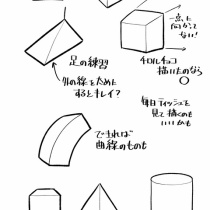 一点に
向かって
ない!
足の練習
外の線を太めた
するとキレイ?
チロルチョコ
描いたのなら
○
毎日ティッシュを
見て描くのも
いいかも
できれば
曲線のものも